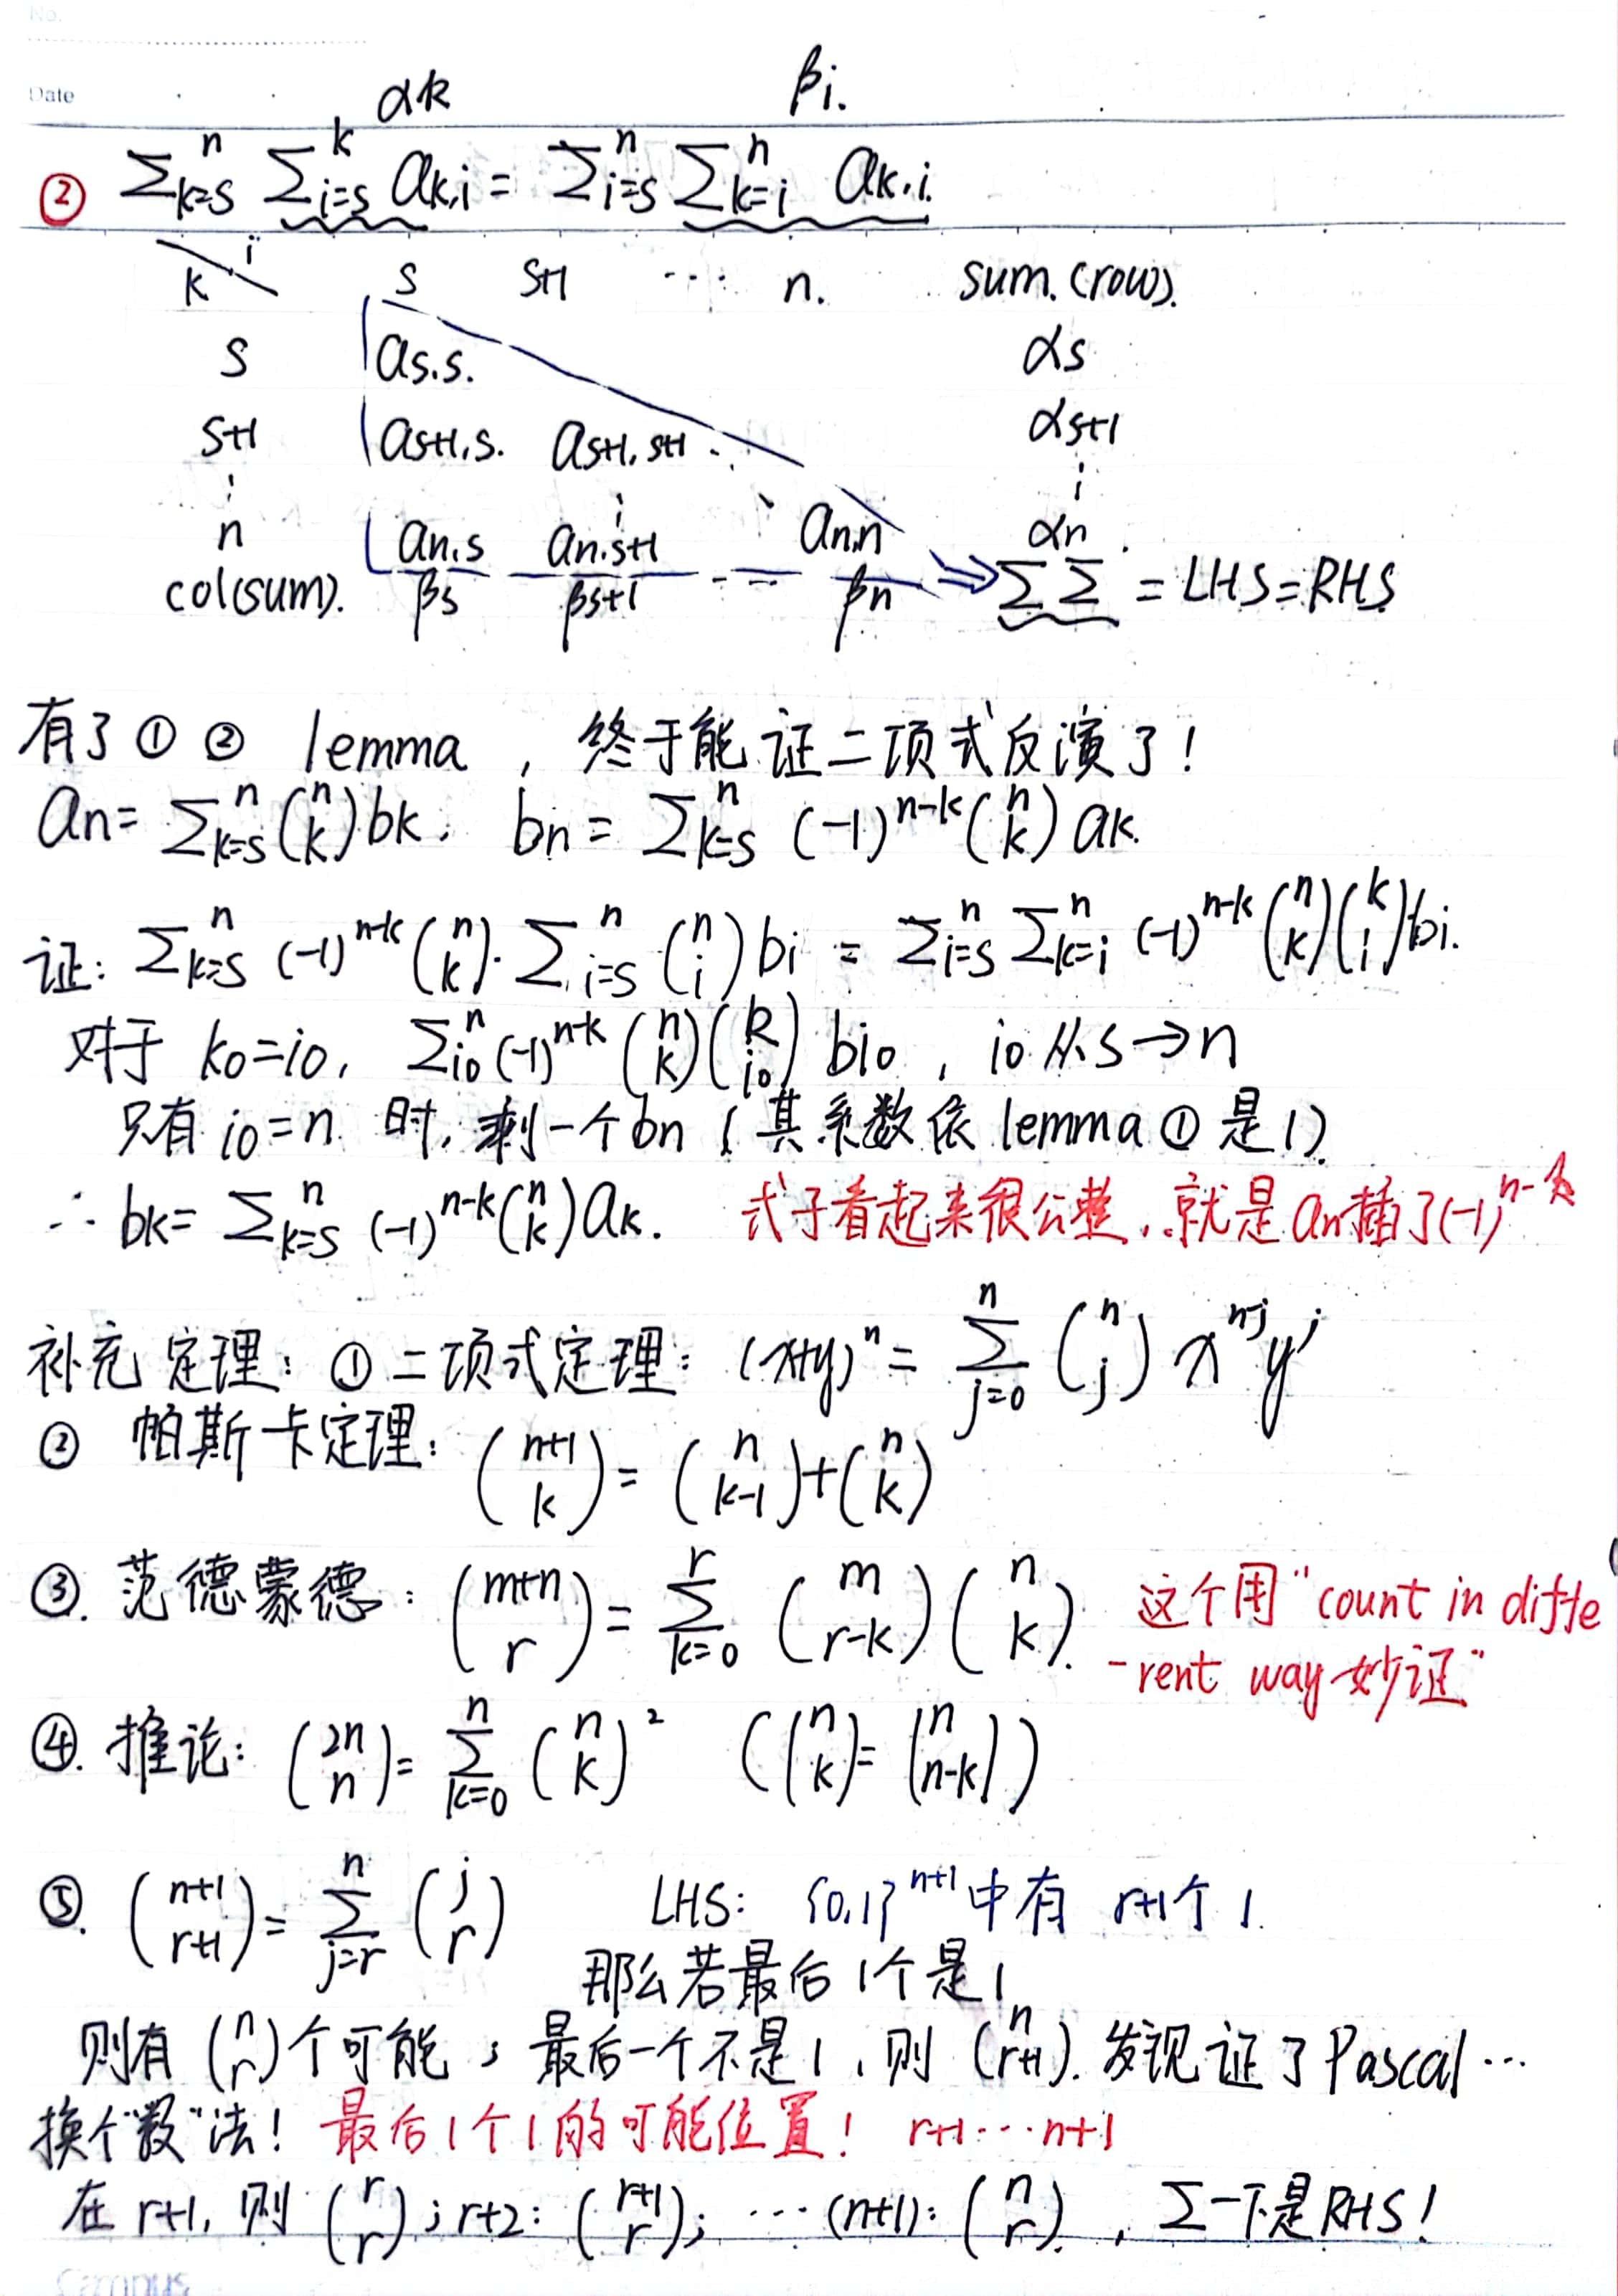 No.
Date
αk βi.
② ∑_{k=s}^{n} ∑_{i=s}^{k} a_{k,i} = ∑_{i=s}^{n} ∑_{k=i}^{n} a_{k,i}.
k i s s+1 ... n. sum.(row).
s a_{s.s.} α_s
s+1 a_{s+1,s.} a_{s+1,s+1} α_{s+1}
⋮ ⋮ ⋮
n a_{n,s} a_{n,s+1} a_{n,n} α_n
col(sum). β_s β_{s+1} -- β_n ⇒ ∑∑ = LHS=RHS
有了 ① ② lemma ，终于能证二项式反演了！
a_n = ∑_{k=s}^{n} \binom{n}{k} b_k; b_n = ∑_{k=s}^{n} (-1)^{n-k} \binom{n}{k} a_k.
证: ∑_{k=s}^{n} (-1)^{n-k} \binom{n}{k} · ∑_{i=s}^{n} \binom{n}{i} b_i = ∑_{i=s}^{n} ∑_{k=i}^{n} (-1)^{n-k} \binom{n}{k} \binom{k}{i} b_i.
对于 k_0=i_0, ∑_{i_0}^{n} (-1)^{n-k} \binom{n}{k} \binom{k}{i_0} b_{i_0} , i_0 从 s→n
只有 i_0=n 时, 剩一个 b_n (其系数依 lemma ① 是1).
∴ b_k = ∑_{k=s}^{n} (-1)^{n-k} \binom{n}{k} a_k. 式子看起来很公整, 就是 a_n 插了 (-1)^{n-k}
补充定理: ① 二项式定理: (x+y)^n = ∑_{j=0}^{n} \binom{n}{j} x^{n-j} y^j
② 帕斯卡定理: \binom{n+1}{k} = \binom{n}{k-1} + \binom{n}{k}
③. 范德蒙德: \binom{m+n}{r} = ∑_{k=0}^{r} \binom{m}{r-k} \binom{n}{k}. 这个用 "count in diffe
-rent way 妙证"
④. 推论: \binom{2n}{n} = ∑_{k=0}^{n} \binom{n}{k}^2 ( \binom{n}{k} = \binom{n}{n-k} )
⑤. \binom{n+1}{r+1} = ∑_{j=r}^{n} \binom{j}{r} LHS: {0,1}^{n+1} 中有 r+1个 1.
那么若最后1个是1
则有 \binom{n}{r} 个可能; 最后一个不是1, 则 \binom{n}{r+1}. 发现证了 Pascal ...
换个"数"法! 最后1个1的可能位置! r+1...n+1
在 r+1, 则 \binom{r}{r}; r+2: \binom{r+1}{r}; ... (n+1): \binom{n}{r}, ∑一下是RHS!
Campus